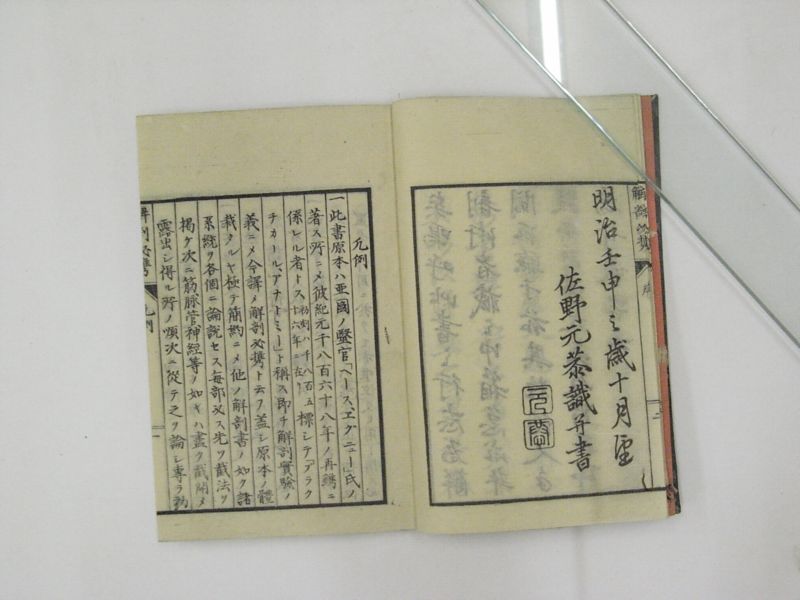 明治壬申之歳十月望
佐野元恭識并書
凡例
一此書原本ハ亜國ノ醫官「ヘース、エグニュー」氏ノ
著ス所ニメ彼紀元千八百六十八年ノ再鐫ニ
係レル者トス初刻ハ千八百五十六年ニ在リ標シテ「プラク
チカールアナトミー」ト稱ス即チ解剖實驗ノ
義ニメ今譯メ解剖必携ト云フ蓋シ原本ノ體
裁タルヤ極テ簡約ニメ他ノ解剖書ノ如ク諸
系統ヲ各個ニ論説セス毎部必ス先ツ截法ヲ
掲ケ次ニ筋脉管神經等ノ如キハ盡ク截開メ
露出シ得ル所ノ順次ニ從テ之ヲ論シ専ラ
凡例